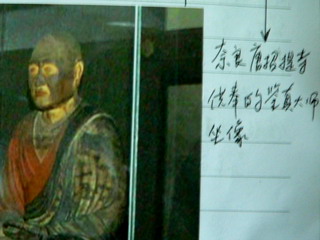 奈良唐招提寺
供奉的鉴真大师
坐像